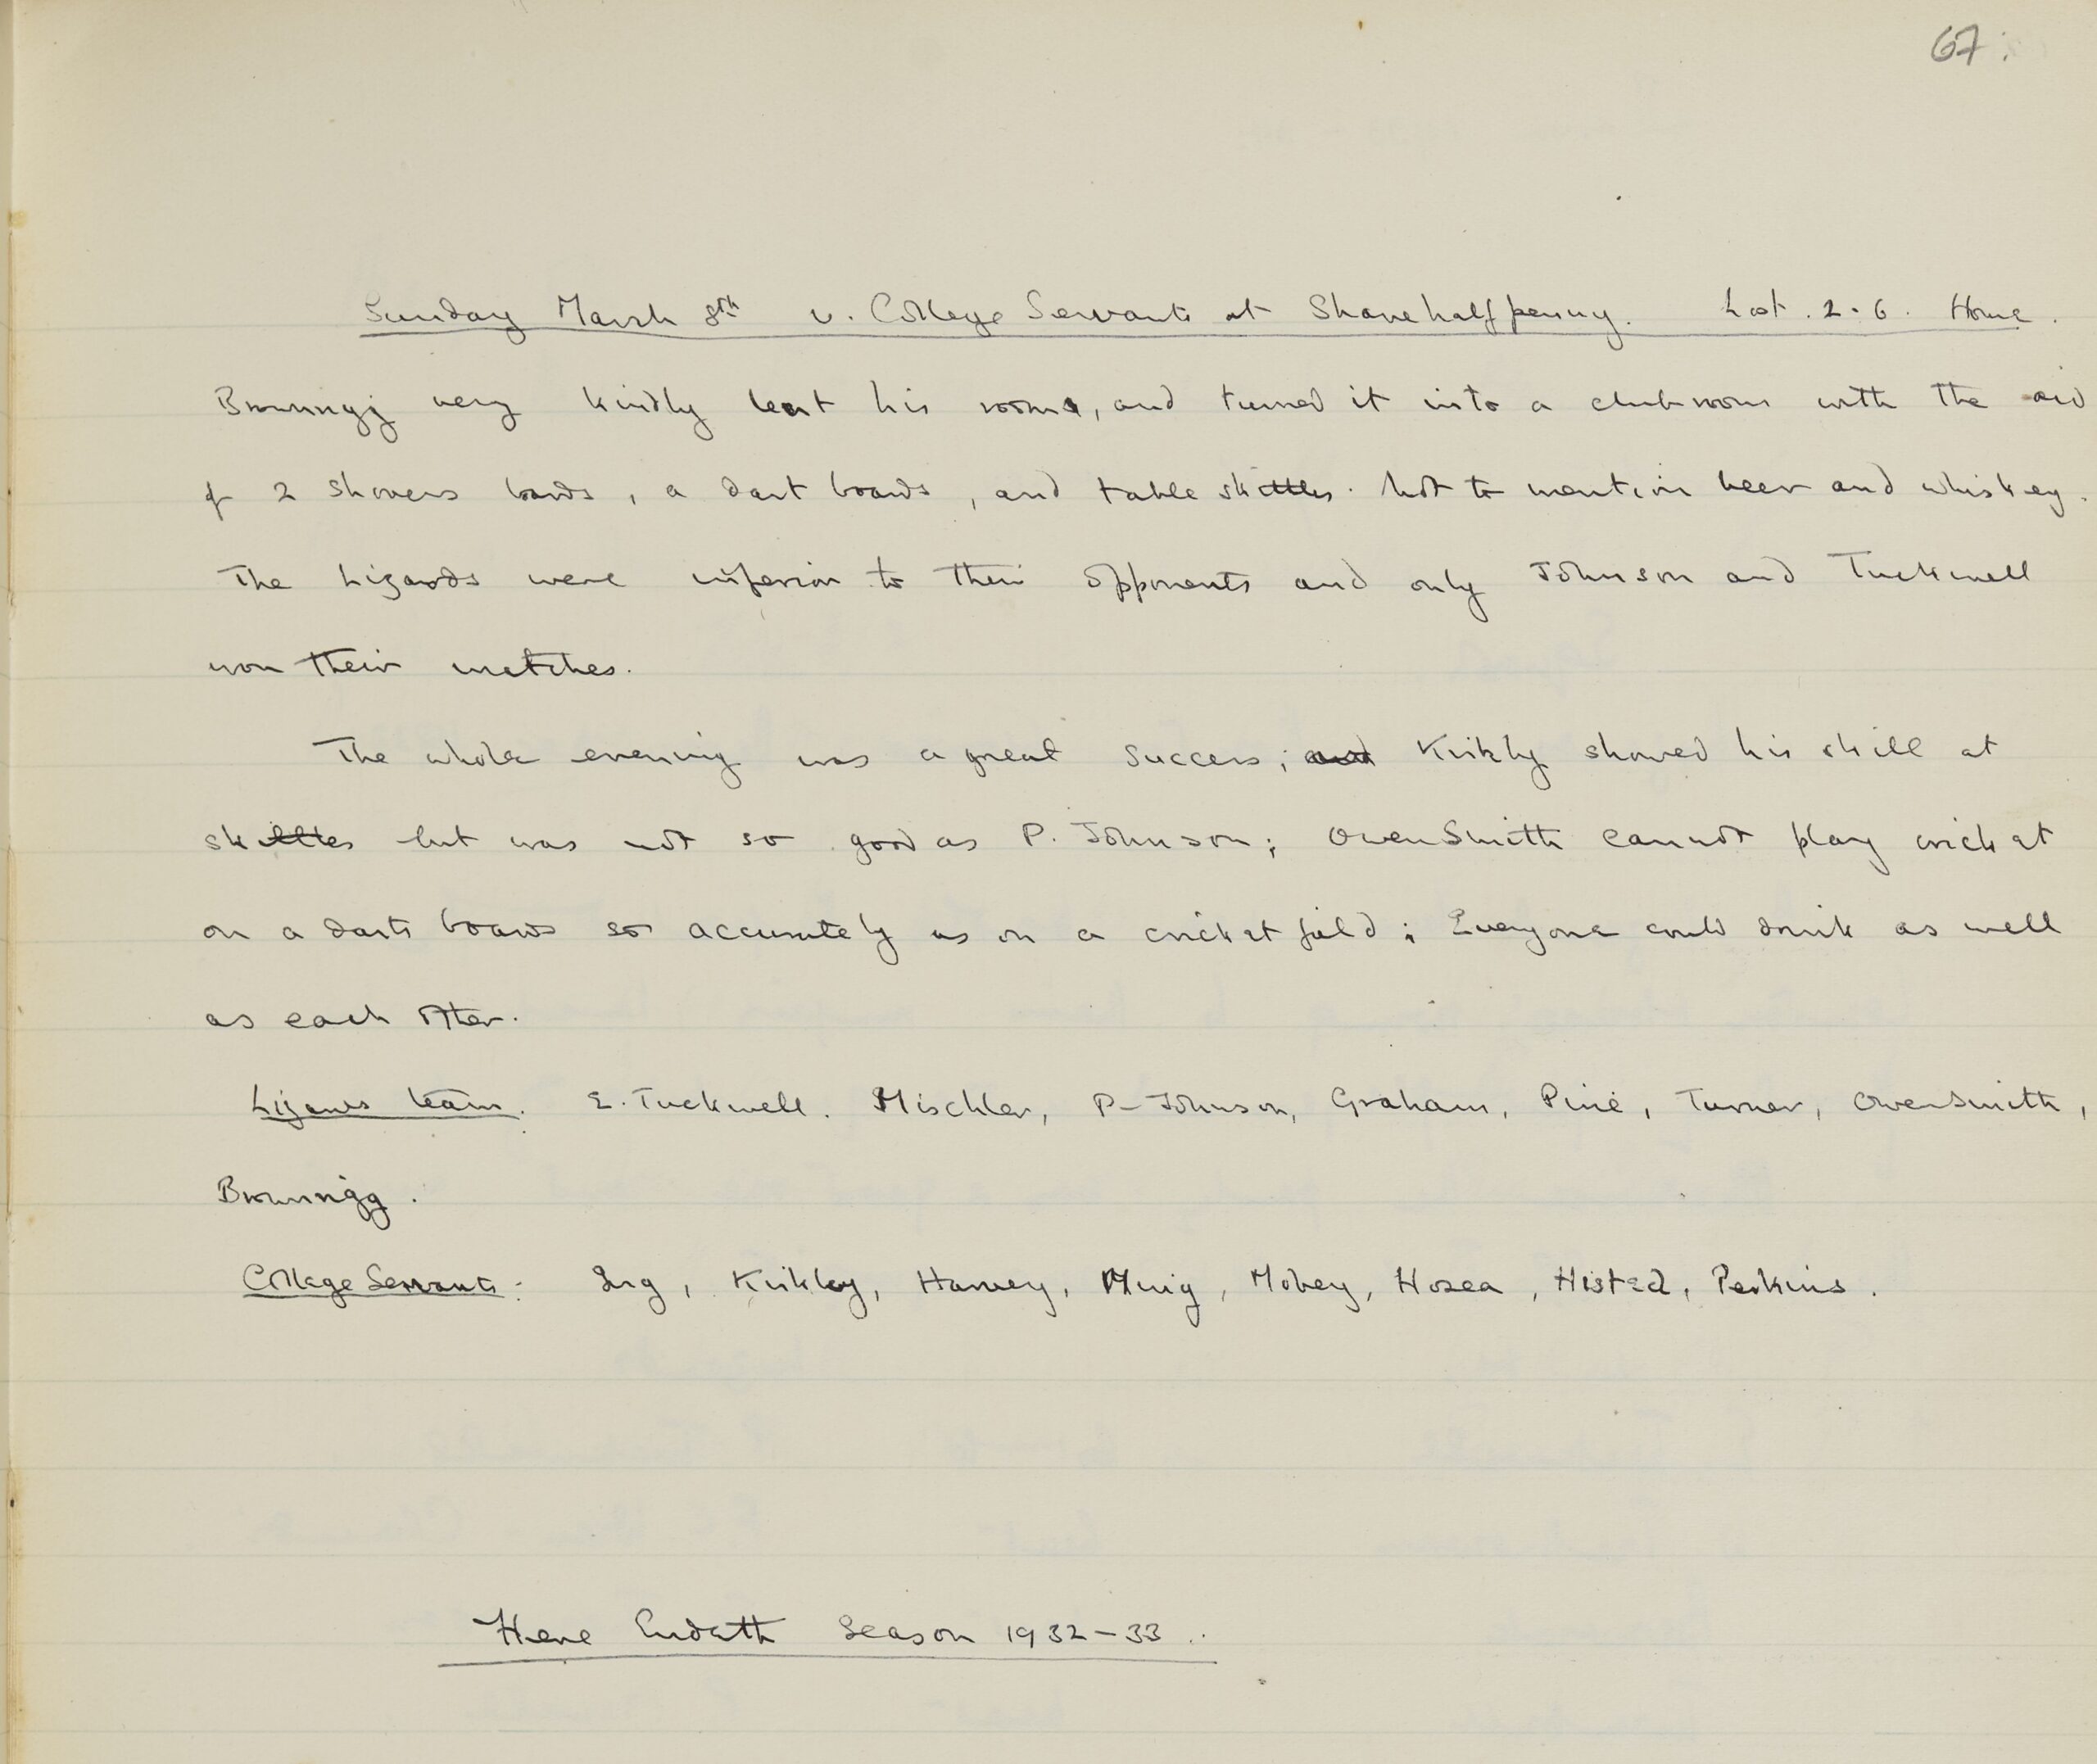 67.
Sunday March 8th v. College Servants at Shovehalfpenny. Lost. 2-6. Home.
Brownrigg very kindly lent his rooms, and turned it into a club room with the aid
of 2 shovers boards, a dart board, and table skittles. Not to mention beer and whiskey.
The Lizards were inferior to their opponents and only Johnson and Tuckwell
won their matches.
The whole evening was a great success; and Kirkby showed his skill at
skittles but was not so good as P. Johnson; Owen Smith cannot play cricket
on a darts board so accurately as on a cricket field; Everyone could drink as well
as each other.
Lizards team. E. Tuckwell. Mischler, P-Johnson, Graham, Pirie, Turner, Owen Smith,
Brownrigg.
College Servants: Ing, Kirkby, Harvey, Mobey, Hosea, Histed, Perkins.
Here Endeth Season 1932-33.